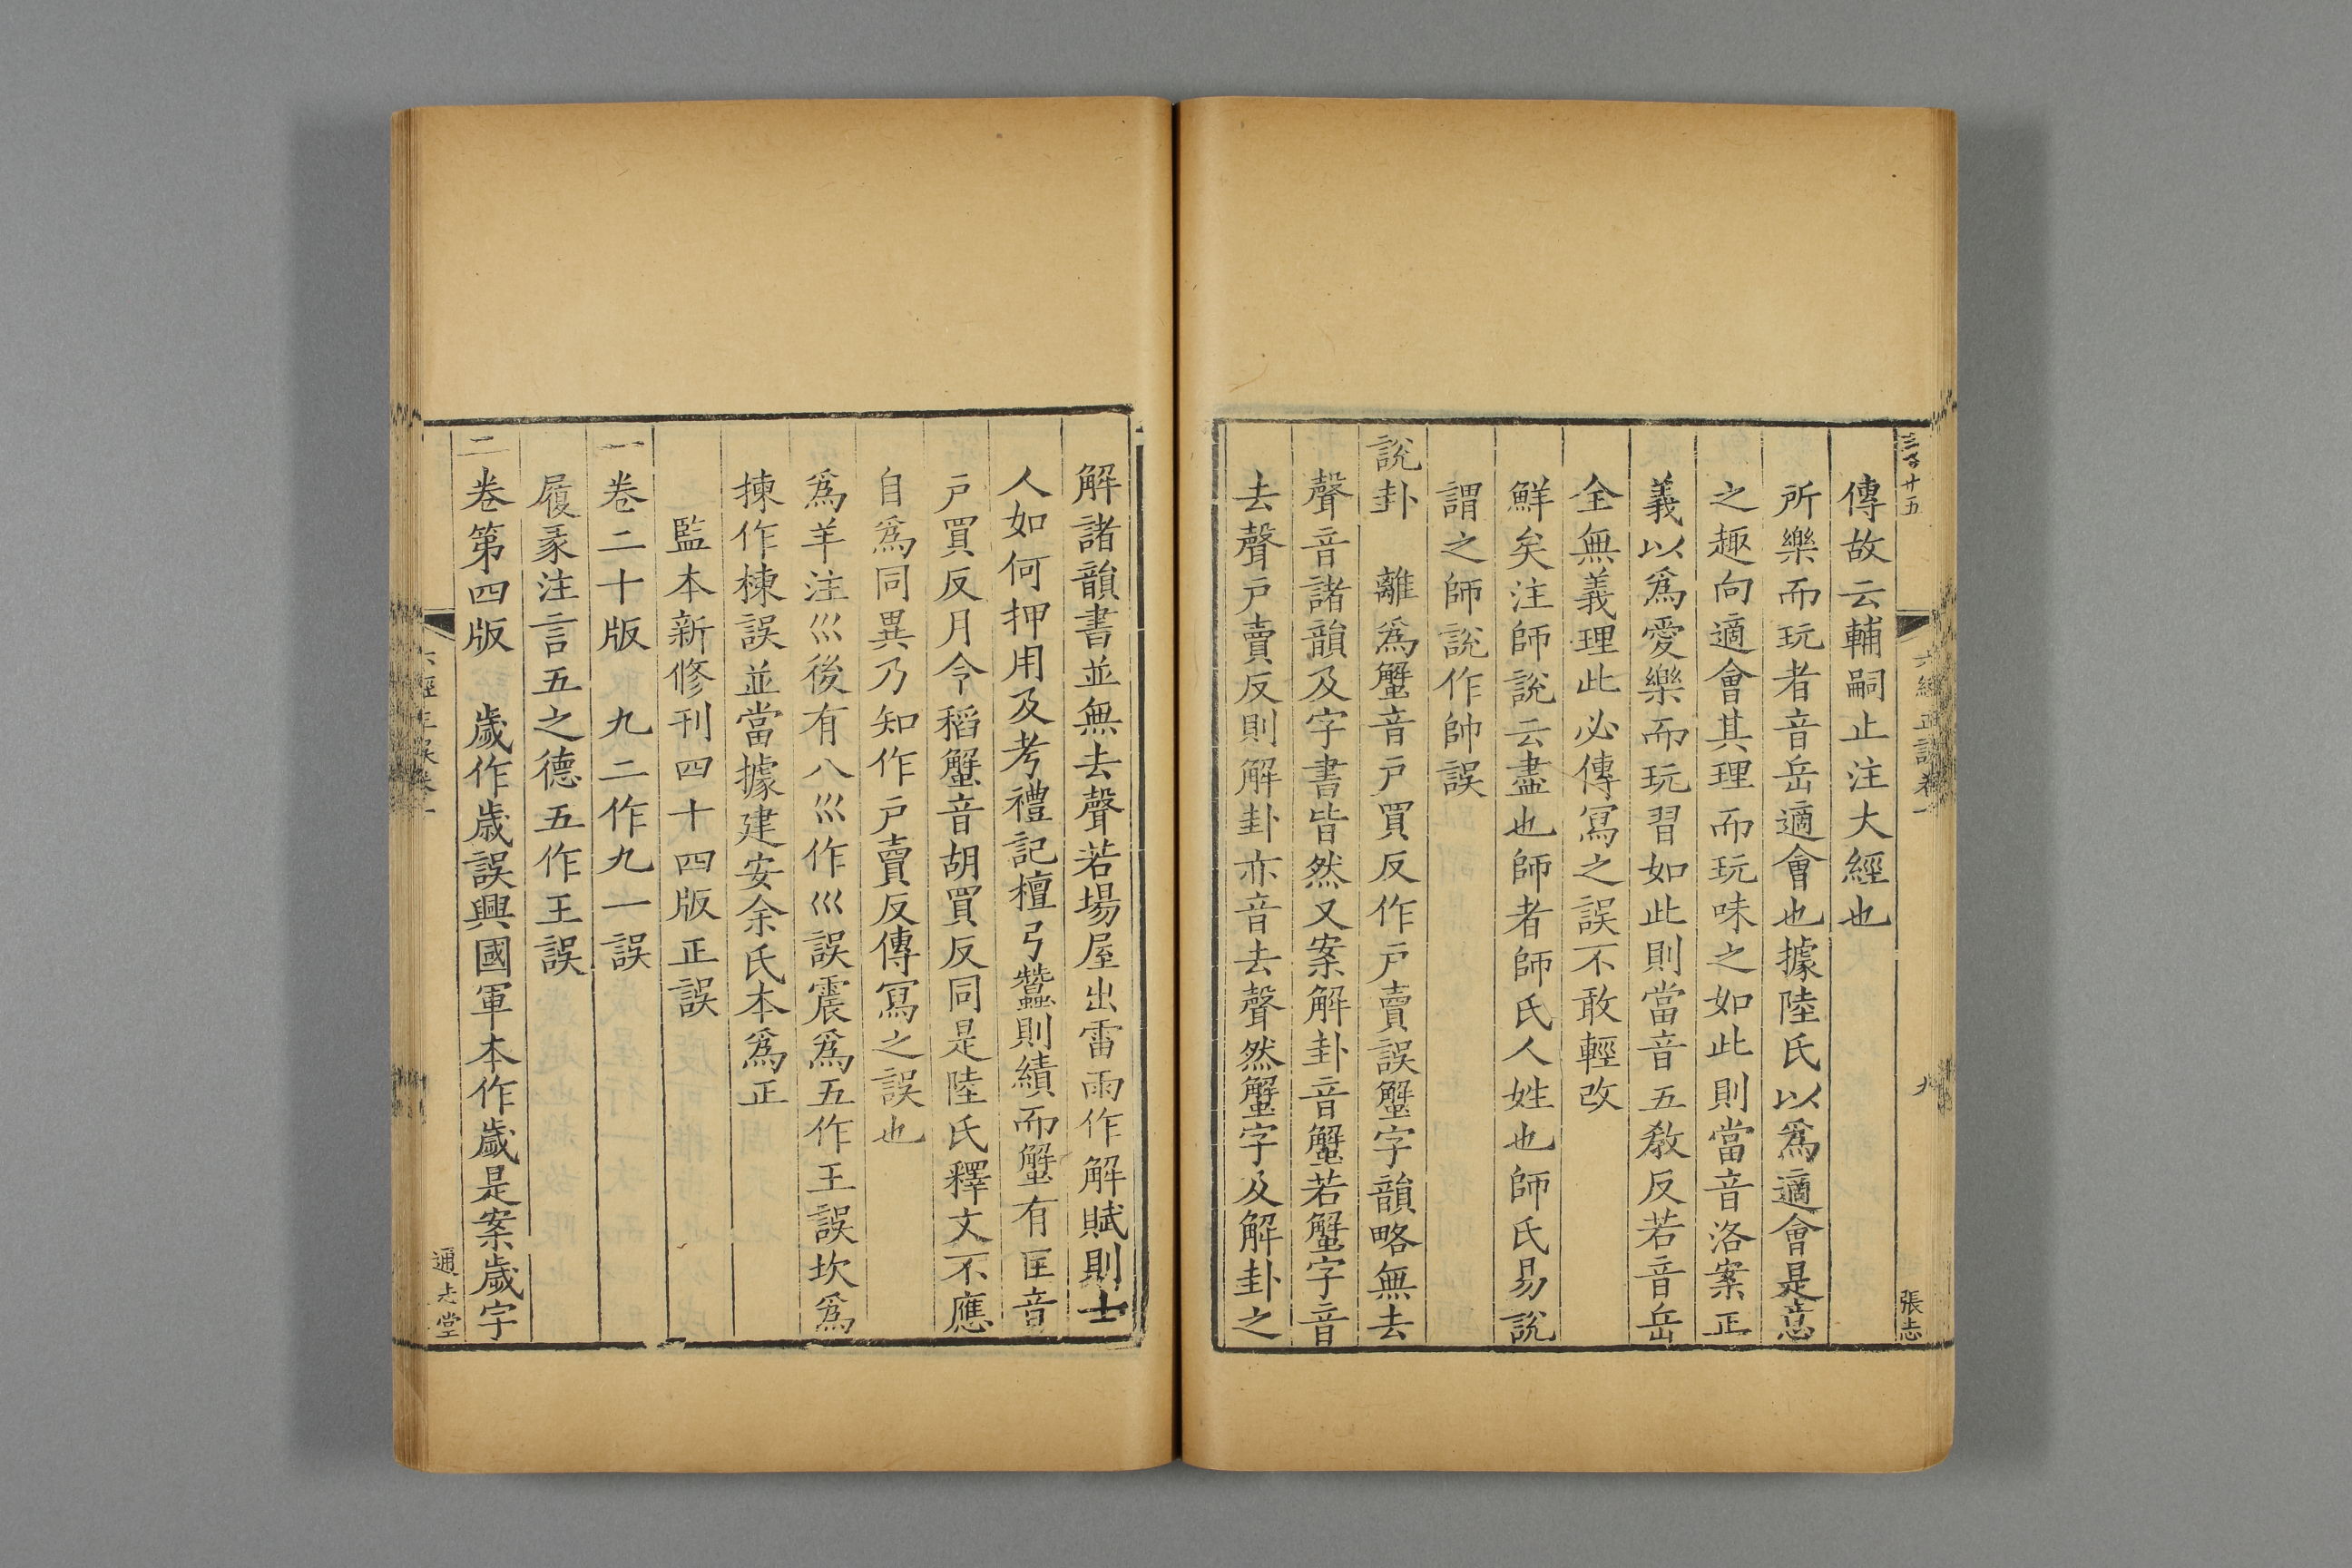 傳故云輔嗣止注大經也
所樂而玩者音岳適會也據陸氏以爲適會是意
之趣向適會其理而玩味之如此則當音洛案正
義以爲愛樂而玩習如此則當音五教反若音岳
全無義理此必傳寫之誤不敢輕改
鮮矣注師說云盡也師者師氏人姓也師氏易說
謂之師說作帥誤
說卦　離爲蟹音戸買反作戸賣誤蟹字韻略無去
聲音諸韻及字書皆然又案解卦音蟹若蟹字音
去聲戸賣反則解卦亦音去聲然蟹字及解卦之
張志
解諸韻書並無去聲若場屋出雷雨作解賦則士
人如何押用及考禮記檀弓蠶則績而蟹有匡音
戸買反月令稻蟹音胡買反同是陸氏釋文不應
自爲同異乃知作戸賣反傳寫之誤也
爲羊注巛後有八巛作巛誤震爲五作王誤坎爲
揀作楝誤並當據建安余氏本爲正
監本新修刊四十四版正誤
一卷二十版　九二作九一誤
履彖注言五之德五作王誤
二卷第四版　歲作歳誤興國軍本作歲是案歲字
通志堂